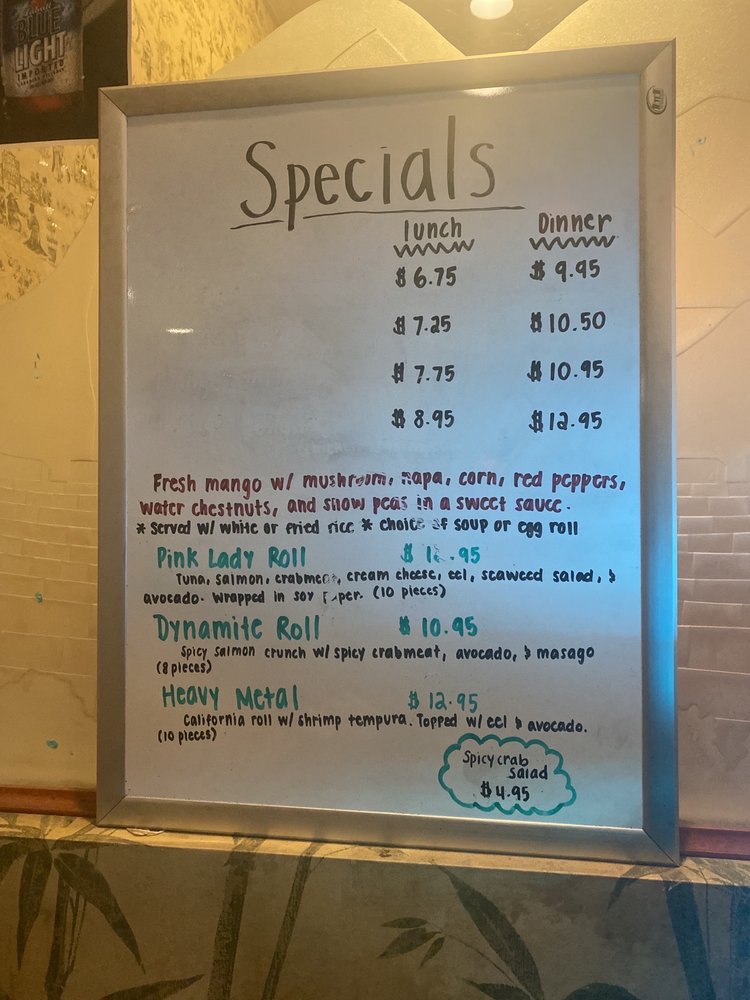 BLUE
LIGHT
IMPORTED
Specials
lunch Dinner
$ 6.75 $ 9.95
$ 7.25 $ 10.50
$ 7.75 $ 10.95
$ 8.95 $ 12.95
Fresh mango w/ mushroom, napa, corn, red peppers,
water chestnuts, and snow peas in a sweet sauce.
* Served w/ white or fried rice * choice of soup or egg roll
Pink Lady Roll
Tuna, salmon, crabmeat, cream cheese, eel, seaweed salad, &
avocado. Wrapped in soy paper. (10 pieces)
Dynamite Roll $ 10.95
Spicy salmon crunch w/ spicy crabmeat, avocado, & masago
(8 pieces)
Heavy Metal $ 12.95
California roll w/ shrimp tempura. Topped w/ eel & avocado.
(10 pieces)
Spicy crab
salad
$ 4.95